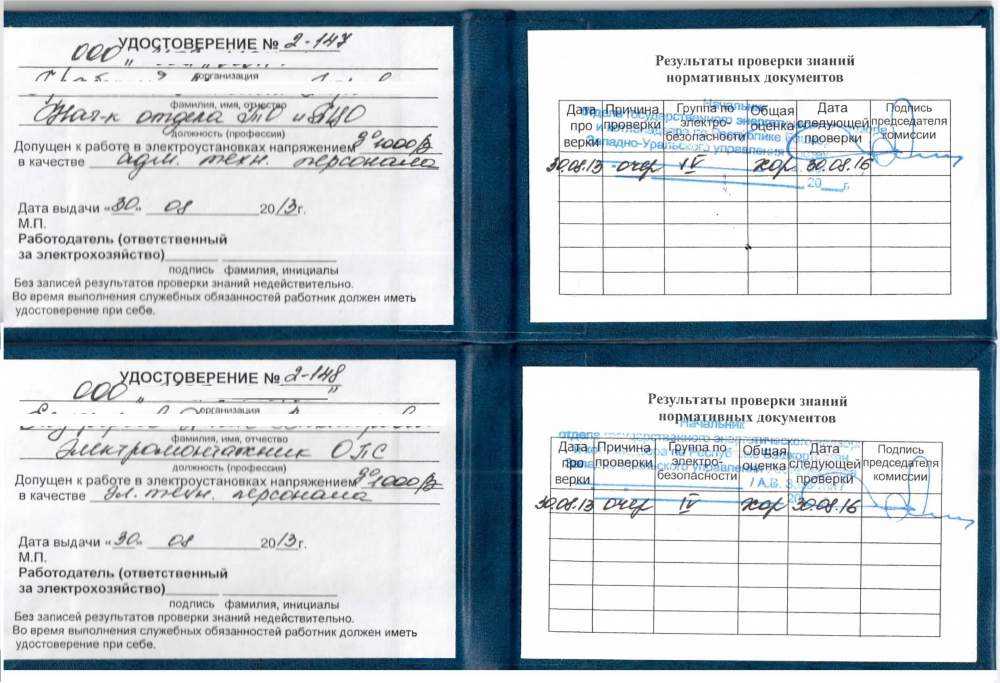 УДОСТОВЕРЕНИЕ № 2-147
ООО
организация
фамилия, имя, отчество
Нач-к отдела ТО и
должность (профессия)
Допущен к работе в электроустановках напряжением до 1000 В
в качестве адм. техн. персонала
Дата выдачи «30» 08 2013г.
М.П.
Работодатель (ответственный
за электрохозяйство)
подпись фамилия, инициалы
Без записей результатов проверки знаний недействительно.
Во время выполнения служебных обязанностей работник должен иметь
удостоверение при себе.
Результаты проверки знаний
нормативных документов
Начальник
отдела государственного
Западно-Уральского управления
20 г.
Дата проверки
Причина проверки
Группа по электробезопасности
Общая оценка
Дата следующей проверки
Подпись председателя комиссии
30.08.13 очер IV хор 30.08.16
УДОСТОВЕРЕНИЕ № 2-148
ООО
организация
фамилия, имя, отчество
Электромонтажник ОПС
должность (профессия)
Допущен к работе в электроустановках напряжением до 1000 В
в качестве эл. техн. персонала
Дата выдачи «30» 08 2013г.
М.П.
Работодатель (ответственный
за электрохозяйство)
подпись фамилия, инициалы
Без записей результатов проверки знаний недействительно.
Во время выполнения служебных обязанностей работник должен иметь
удостоверение при себе.
Результаты проверки знаний
нормативных документов
Начальник
отдела государственного энергетического
управления
/ А.В.
20
Дата проверки
Причина проверки
Группа по электро-безопасности
Общая оценка
Дата следующей проверки
Подпись председателя комиссии
30.08.13 очер IV хор 30.08.16